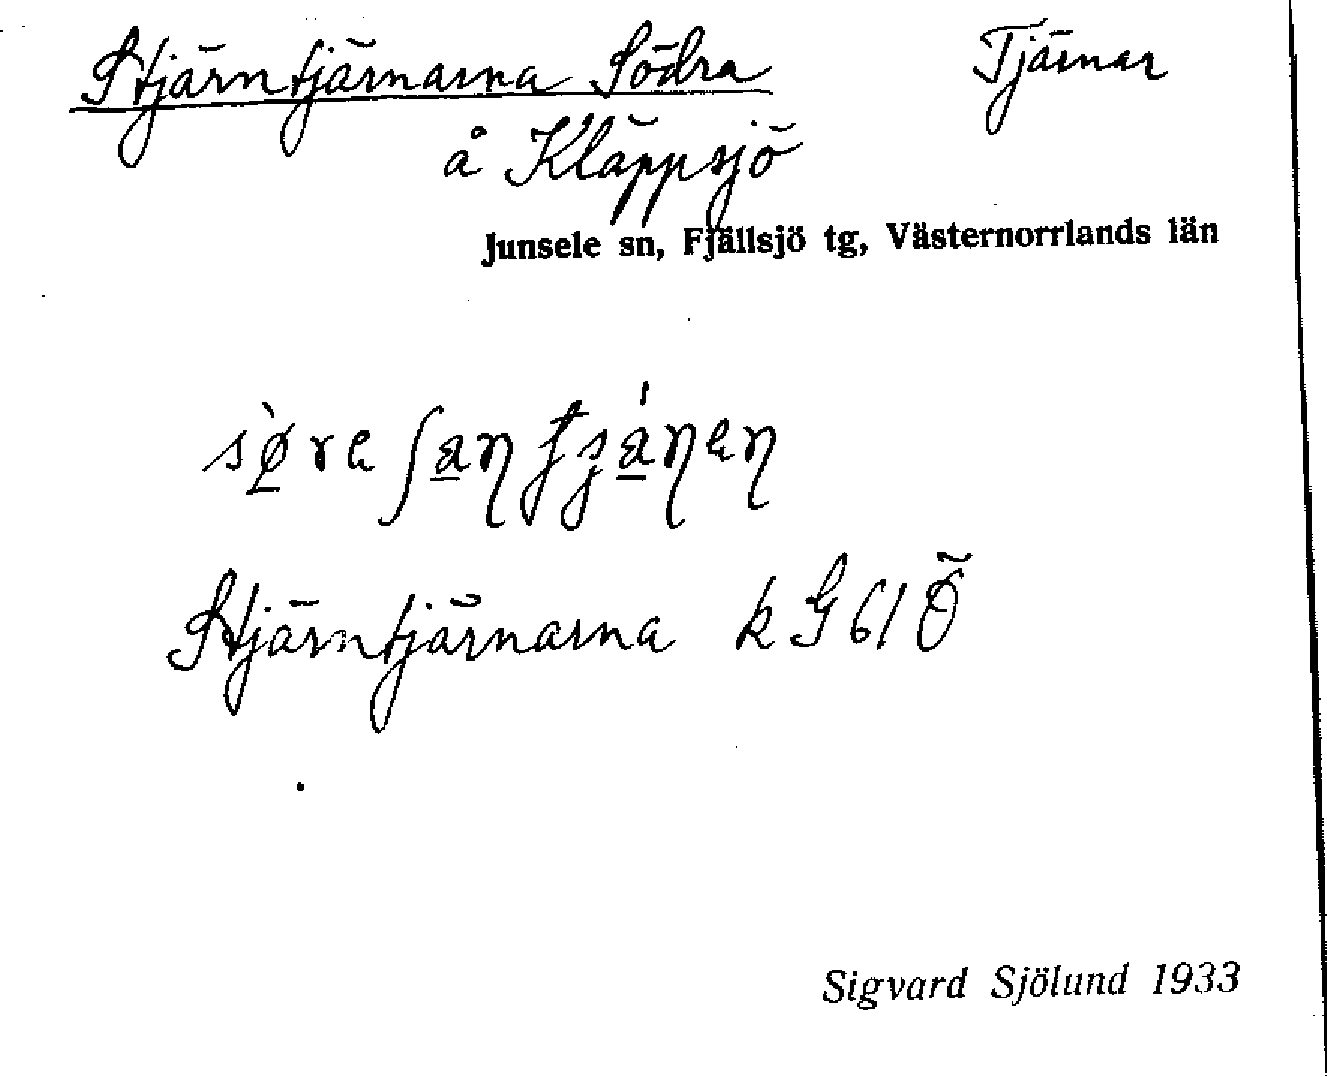 Stjärntjärnarna Södra Tjärnar
å Kläppsjö
Junsele sn, Fjällsjö tg, Västernorrlands län
Stjärntjärnarna k G 61 Ö
Sigvard Sjölund 1933